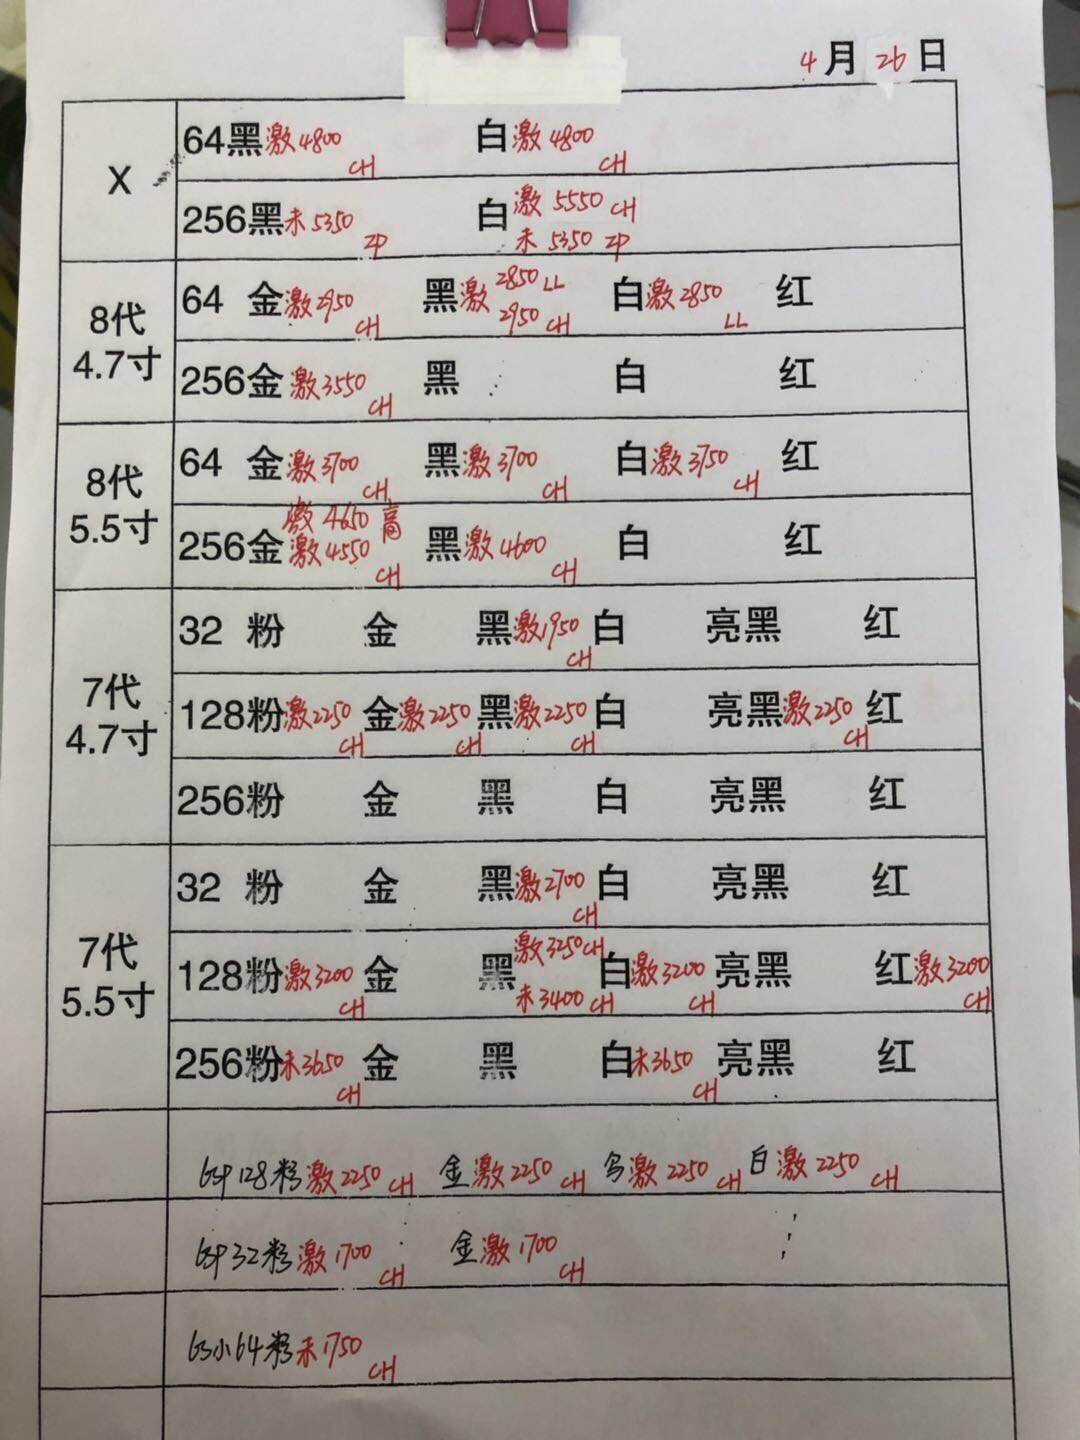 4月26日
X
64黑激4800 CH 白激4800 CH
256黑未5350 ZP 白激5550 CH
未5350 ZP
8代
4.7寸
64 金激2950 CH 黑激2850 LL 2950 CH 白激2850 LL 红
256金激3550 CH 黑 白 红
8代
5.5寸
64 金激3700 CH 黑激3700 CH 白激3750 CH 红
激4650 高
256金激4550 CH 黑激4600 CH 白 红
7代
4.7寸
32 粉 金 黑激1950 CH 白 亮黑 红
128粉激2250 CH 金激2250 CH 黑激2250 CH 白 亮黑激2250 CH 红
256粉 金 黑 白 亮黑 红
7代
5.5寸
32 粉 金 黑激2700 CH 白 亮黑 红
128粉激3200 CH 金 黑激3250 CH 未3400 CH 白激3200 CH 亮黑 红激3200 CH
256粉未3650 CH 金 黑 白未3650 CH 亮黑 红
6SP128粉激2250 CH 金激2250 CH 激2250 CH 白激2250 CH
6SP32粉激1700 CH 金激1700 CH
6S小64粉未1750 CH